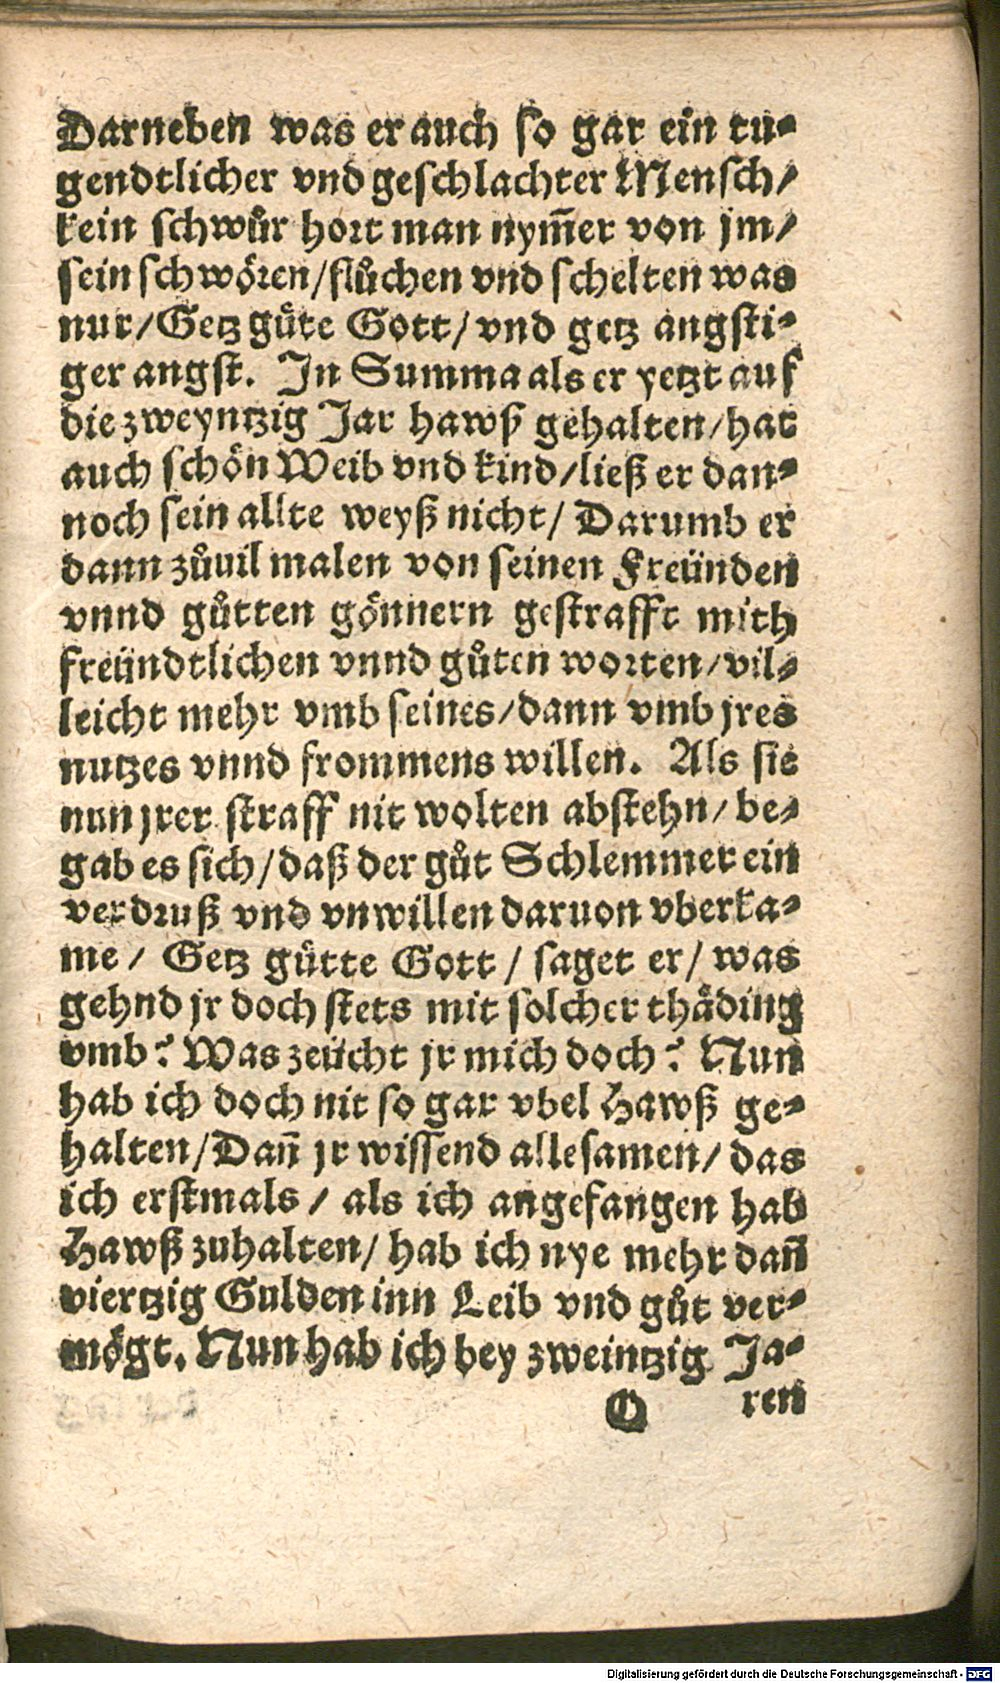 Darneben was er auch so gar ein tu⸗
gendtlicher vnd geschlachter Mensch/
kein schwůr hort man nym̃er von jm/
sein schwören/flůchen vnd schelten was
nur/Getz gůte Gott/vnd getz angsti⸗
ger angst. In Summa als er yetzt auf
die zweyntzig Jar hawß gehalten/hat
auch schön Weib vnd kind/ließ er dan⸗
noch sein allte weyß nicht/ Darumb er
dann zůuil malen von seinen Freünden
vnnd gůtten gönnern gestrafft mith
freündtlichen vnnd gůten worten/vil⸗
leicht mehr vmb seines/dann vmb jres
nutzes vnnd frommens willen. Als sie
nun jrer straff nit wolten abstehn/be⸗
gab es sich/daß der gůt Schlemmer ein
verdruß vnd vnwillen daruon vberka⸗
me/ Getz gůtte Gott/ saget er/ was
gehnd jr doch stets mit solcher thåding
vmb? Was zeücht jr mich doch? Nun
hab ich doch nit so gar vbel Hawß ge⸗
halten/Dañ jr wissend allesamen/das
ich erstmals/ als ich angefangen hab
Hawß zuhalten/hab ich nye mehr dañ
viertzig Gulden inn Leib vnd gůt ver⸗
mögt. Nun hab ich bey zweintzig Ja⸗
O ren
Digitalisierung gefördert durch die Deutsche Forschungsgemeinschaft - DFG